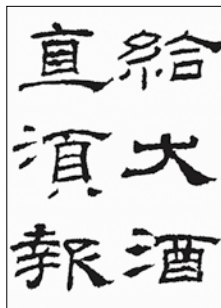 給大酒
直須報